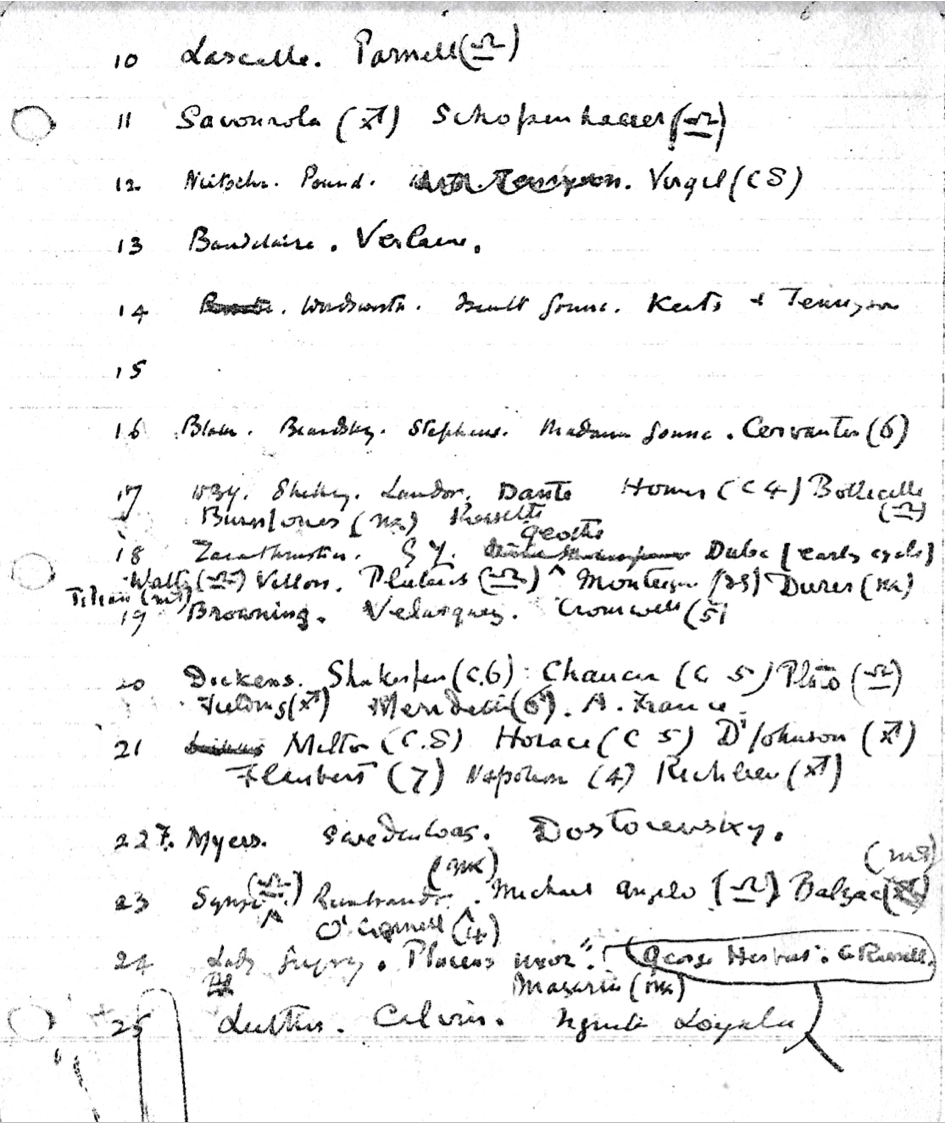 10 Lascelle. Parnell (♎)
11 Savonrola (♐) Schopenhauer (♎)
12 Nietsche. Pound. Virgil (C 8)
13 Baudelaire. Verlaine.
14 Wordsworth. Iseult Gonne. Keats + Tennyson
15
16 Blake. Beardsley. Stephens. Madame Gonne. Cervantes (6)
17 WBY. Shelley. Landor. Dante Homer (C 4) Botticelle
(♎)
Burne Jones Rossetti
geothe
18 Zarathustra. G Y. Dulac [early cycle]
Watts (♎) Villon. Plutarch (♎) ^ Montaigne Durer
Titian
19 Browning. Velasquez. Cromwell (5)
20 Dickens. Shakespear (C.6) Chaucer (C 5) Plato (♎)
Fielding (♐) Meredith (6). A. France.
21 Milton (C.8) Horace (C 5) Dr Johnson (♐)
Flaubert (7) Napoleon (4) Richlieu (♐)
22 Myers. Swedenborg. Dostoievsky.
23 Synge (♎) Rembrandt. Michael Angelo (♎) Balzac
O'Connell (4)
24 Lady Gregory. "Placens uxor". (George Herbert: G Russell.
Mazarin
25 Luther. Calvin. Ignatius Loyala)